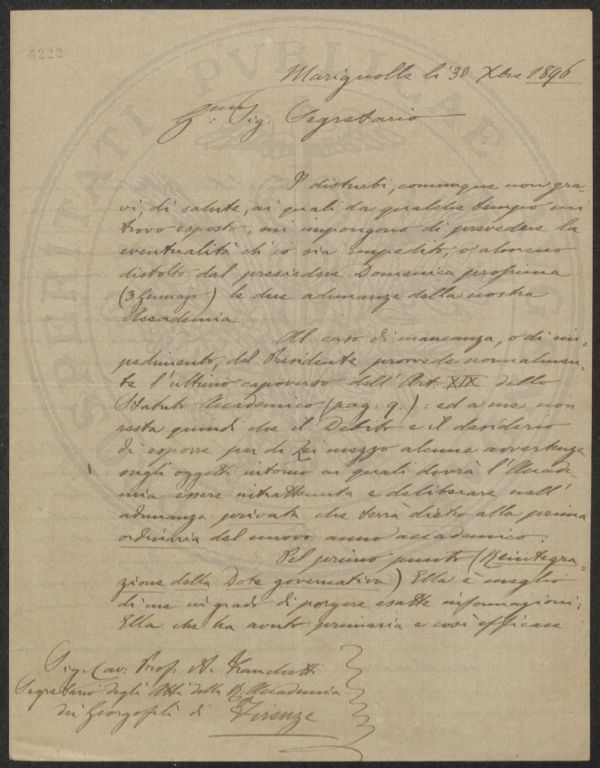 6222
PROSPERITATI PVBLICAE
Marignolle li 30 Xbre 1896
Sig. Segretario
I disturbi, comunque non gra-
vi, di salute, ai quali da qualche tempo mi
trovo esposto, mi impongono di prevedere la
eventualità ch'io sia impedito, o almeno
distolto dal presiedere Domenica prossima
(3 Gennajo) le due adunanze della nostra
Accademia
Al caso di mancanza, o di im-
pedimento, del Presidente provvede normalmen-
te l'ultimo capoverso dell'Art. XIX dello
Statuto Accademico (pag. 9.): ed a me non
resta quindi che il Debito e il desiderio
di esporre per di Lei mezzo alcune avvertenze
sugli oggetti intorno ai quali dovrà l'Accade-
mia essere intrattenuta e deliberare nell'
adunanza privata che terrà dietro alla prima
ordinaria del nuovo anno accademico.
Pel primo punto (Reintegra-
zione della Dote governativa) Ella è meglio
di me in grado di porgere esatte informazioni:
Ella che ha avuto primaria e così efficace
Sig. Cav. Prof. A.
Segretario degli Atti della R. Accademia
dei Georgofili di Firenze